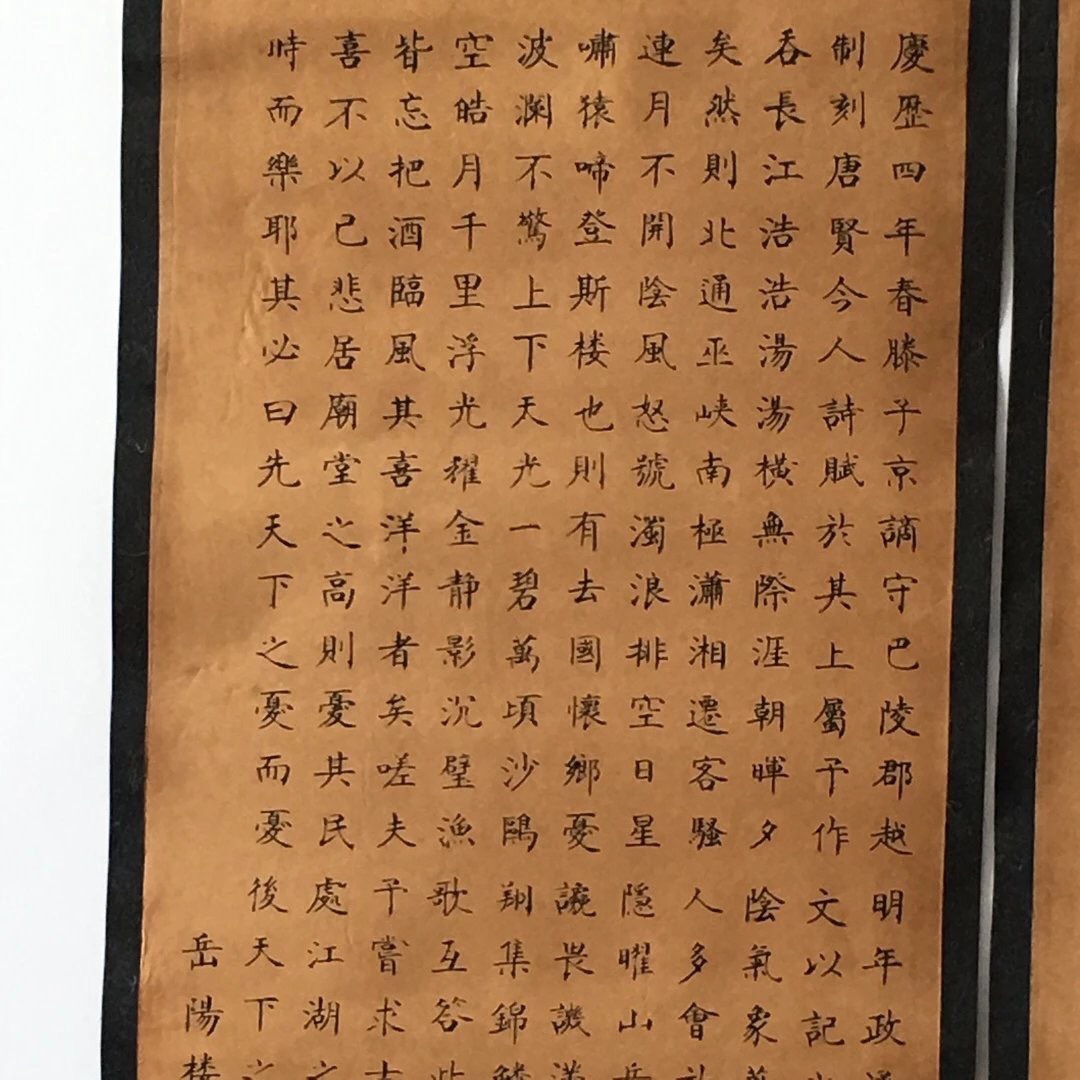 慶歷四年春滕子京謫守巴陵郡越明年政
制刻唐賢今人詩賦於其上屬予作文以記
吞長江浩浩湯湯橫無際涯朝暉夕陰氣象萬
矣然則北通巫峽南極瀟湘遷客騷人多會
連月不開陰風怒號濁浪排空日星隱曜山岳
嘯猿啼登斯楼也則有去國懷鄉憂讒畏譏滿
波澜不驚上下天光一碧萬頃沙鷗翔集錦鱗
空皓月千里浮光耀金静影沉璧漁歌互答此
皆忘把酒臨風其喜洋洋者矣嗟夫予嘗求古
喜不以己悲居廟堂之高則憂其民處江湖之
時而樂耶其必曰先天下之憂而憂後天下之
岳陽楼